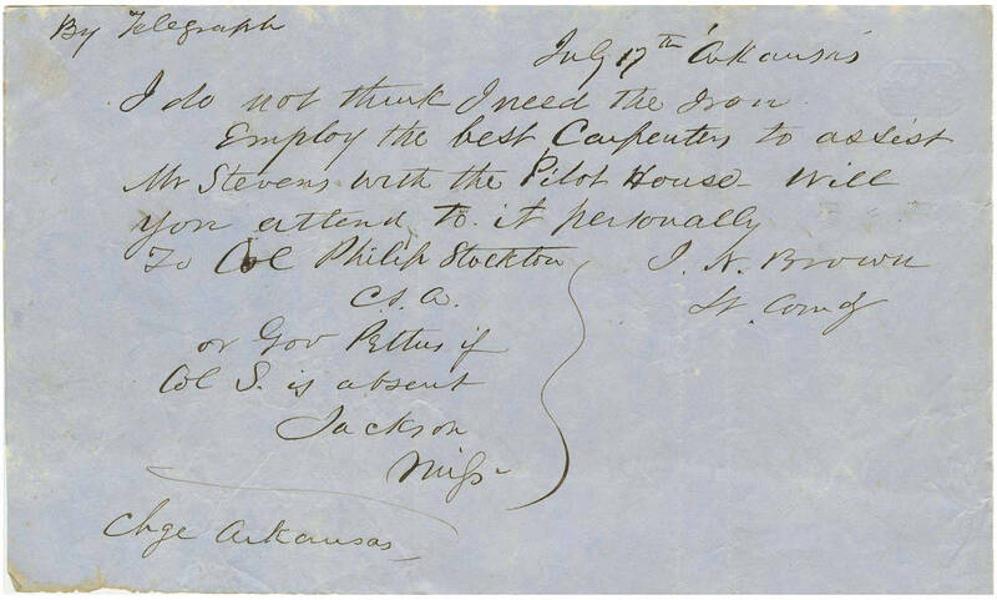 By Telegraph
July 17th 'Arkansas'
I do not think I need the Iron
Employ the best Carpenters to assist
Mr Stevens with the Pilot House - Will
you attend to it personally
To Col Philip Stockton
I. N. Brown
C.S.A.
Lt. Comdg
or Gov Pettus if
Col S. is absent
Jackson
Miss
Chge Arkansas